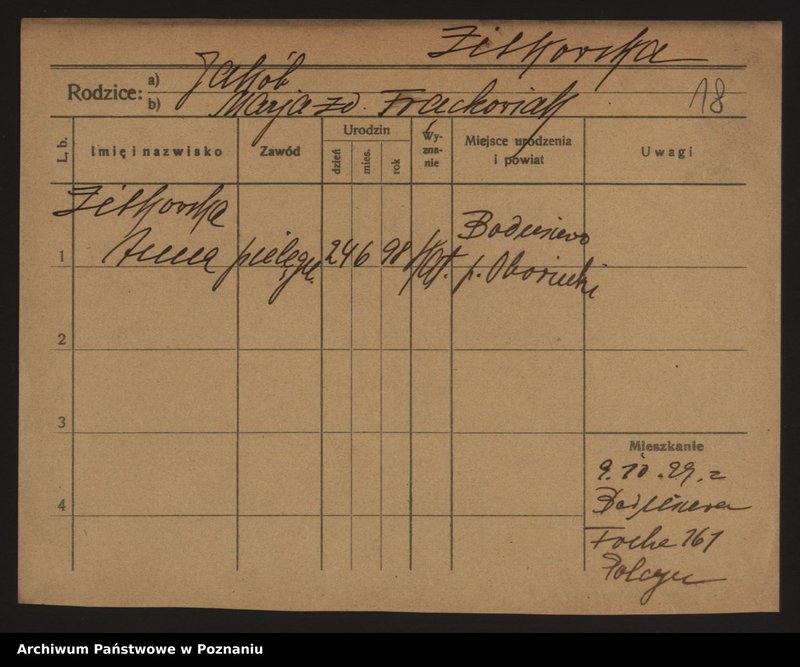 Ziłkowska
Rodzice: a) Jakób
b) Marja zd. Frąckowiak
18
L. b.
Imię i nazwisko
Zawód
Urodzin
dzień
mies.
rok
Wy-
zna-
nie
Miejsce urodzenia
i powiat
Uwagi
1
Ziłkowska
Anna
pielęgn.
24
6
98
kat.
p. Obornicki
2
3
4
Mieszkanie
9.10.29. z
Focha 161
Archiwum Państwowe w Poznaniu